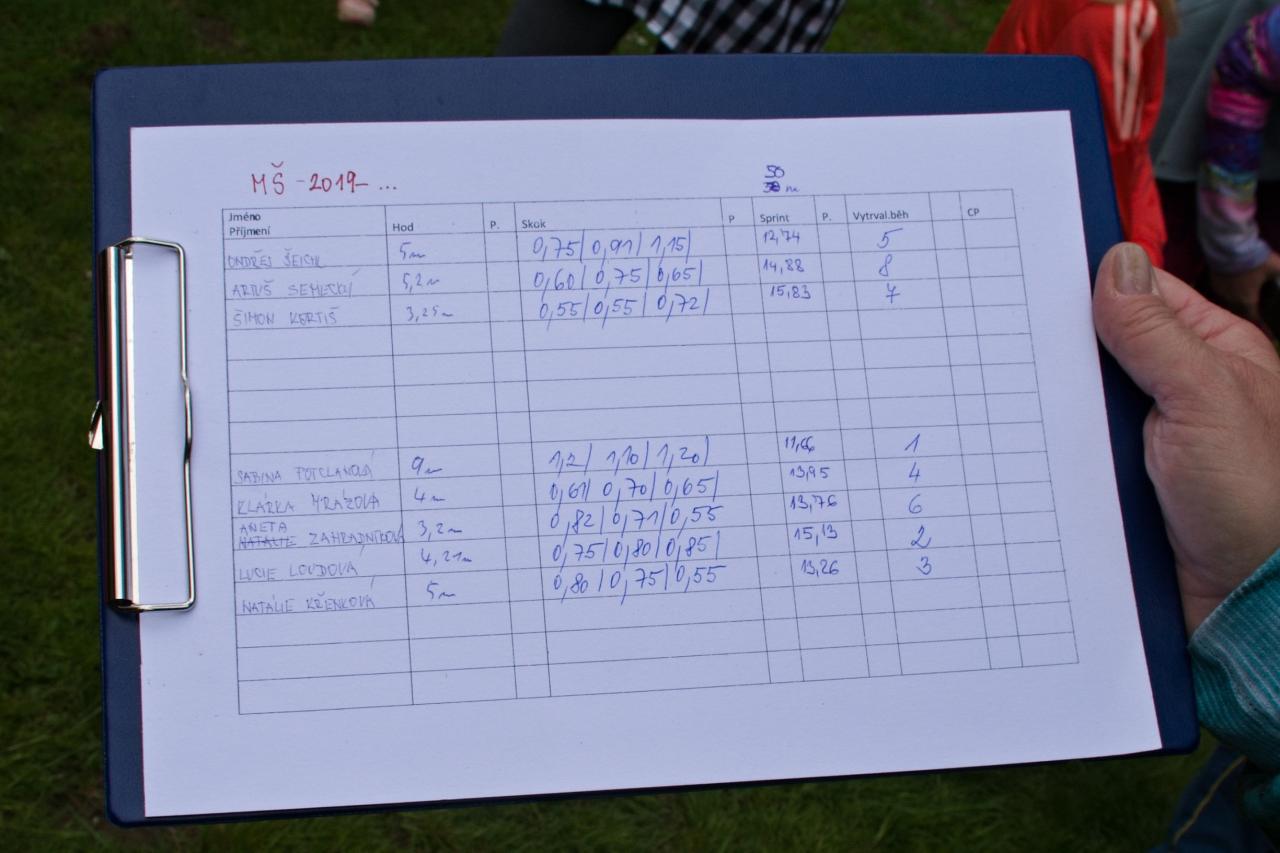 MŠ - 2019- ...
50
m
Jméno Příjmení Hod P. Skok P Sprint P. Vytrval.běh CP
ONDŘEJ 5m 0,75/ 0,91/ 1,15/ 12,74 5
ARTUŠ SEMECKÝ 5,2m 0,60/ 0,75/ 0,65/ 14,88 8
ŠIMON KERTIŠ 3,25m 0,55/ 0,55/ 0,72/ 15,83 7
SABINA 9m 1,2/ 1,10/ 1,20/ 11,66 1
KLÁRKA MRÁZOVÁ 4m 0,61/ 0,70/ 0,65/ 13,95 4
ANETA
NATÁLIE ZAHRADNÍKOVÁ 3,2m 0,82/ 0,71/ 0,55 13,76 6
LUCIE LOUDOVÁ 4,21m 0,75/ 0,80/ 0,85/ 15,13 2
NATÁLIE KŘENKOVÁ 5m 0,80/ 0,75/ 0,55 13,26 3